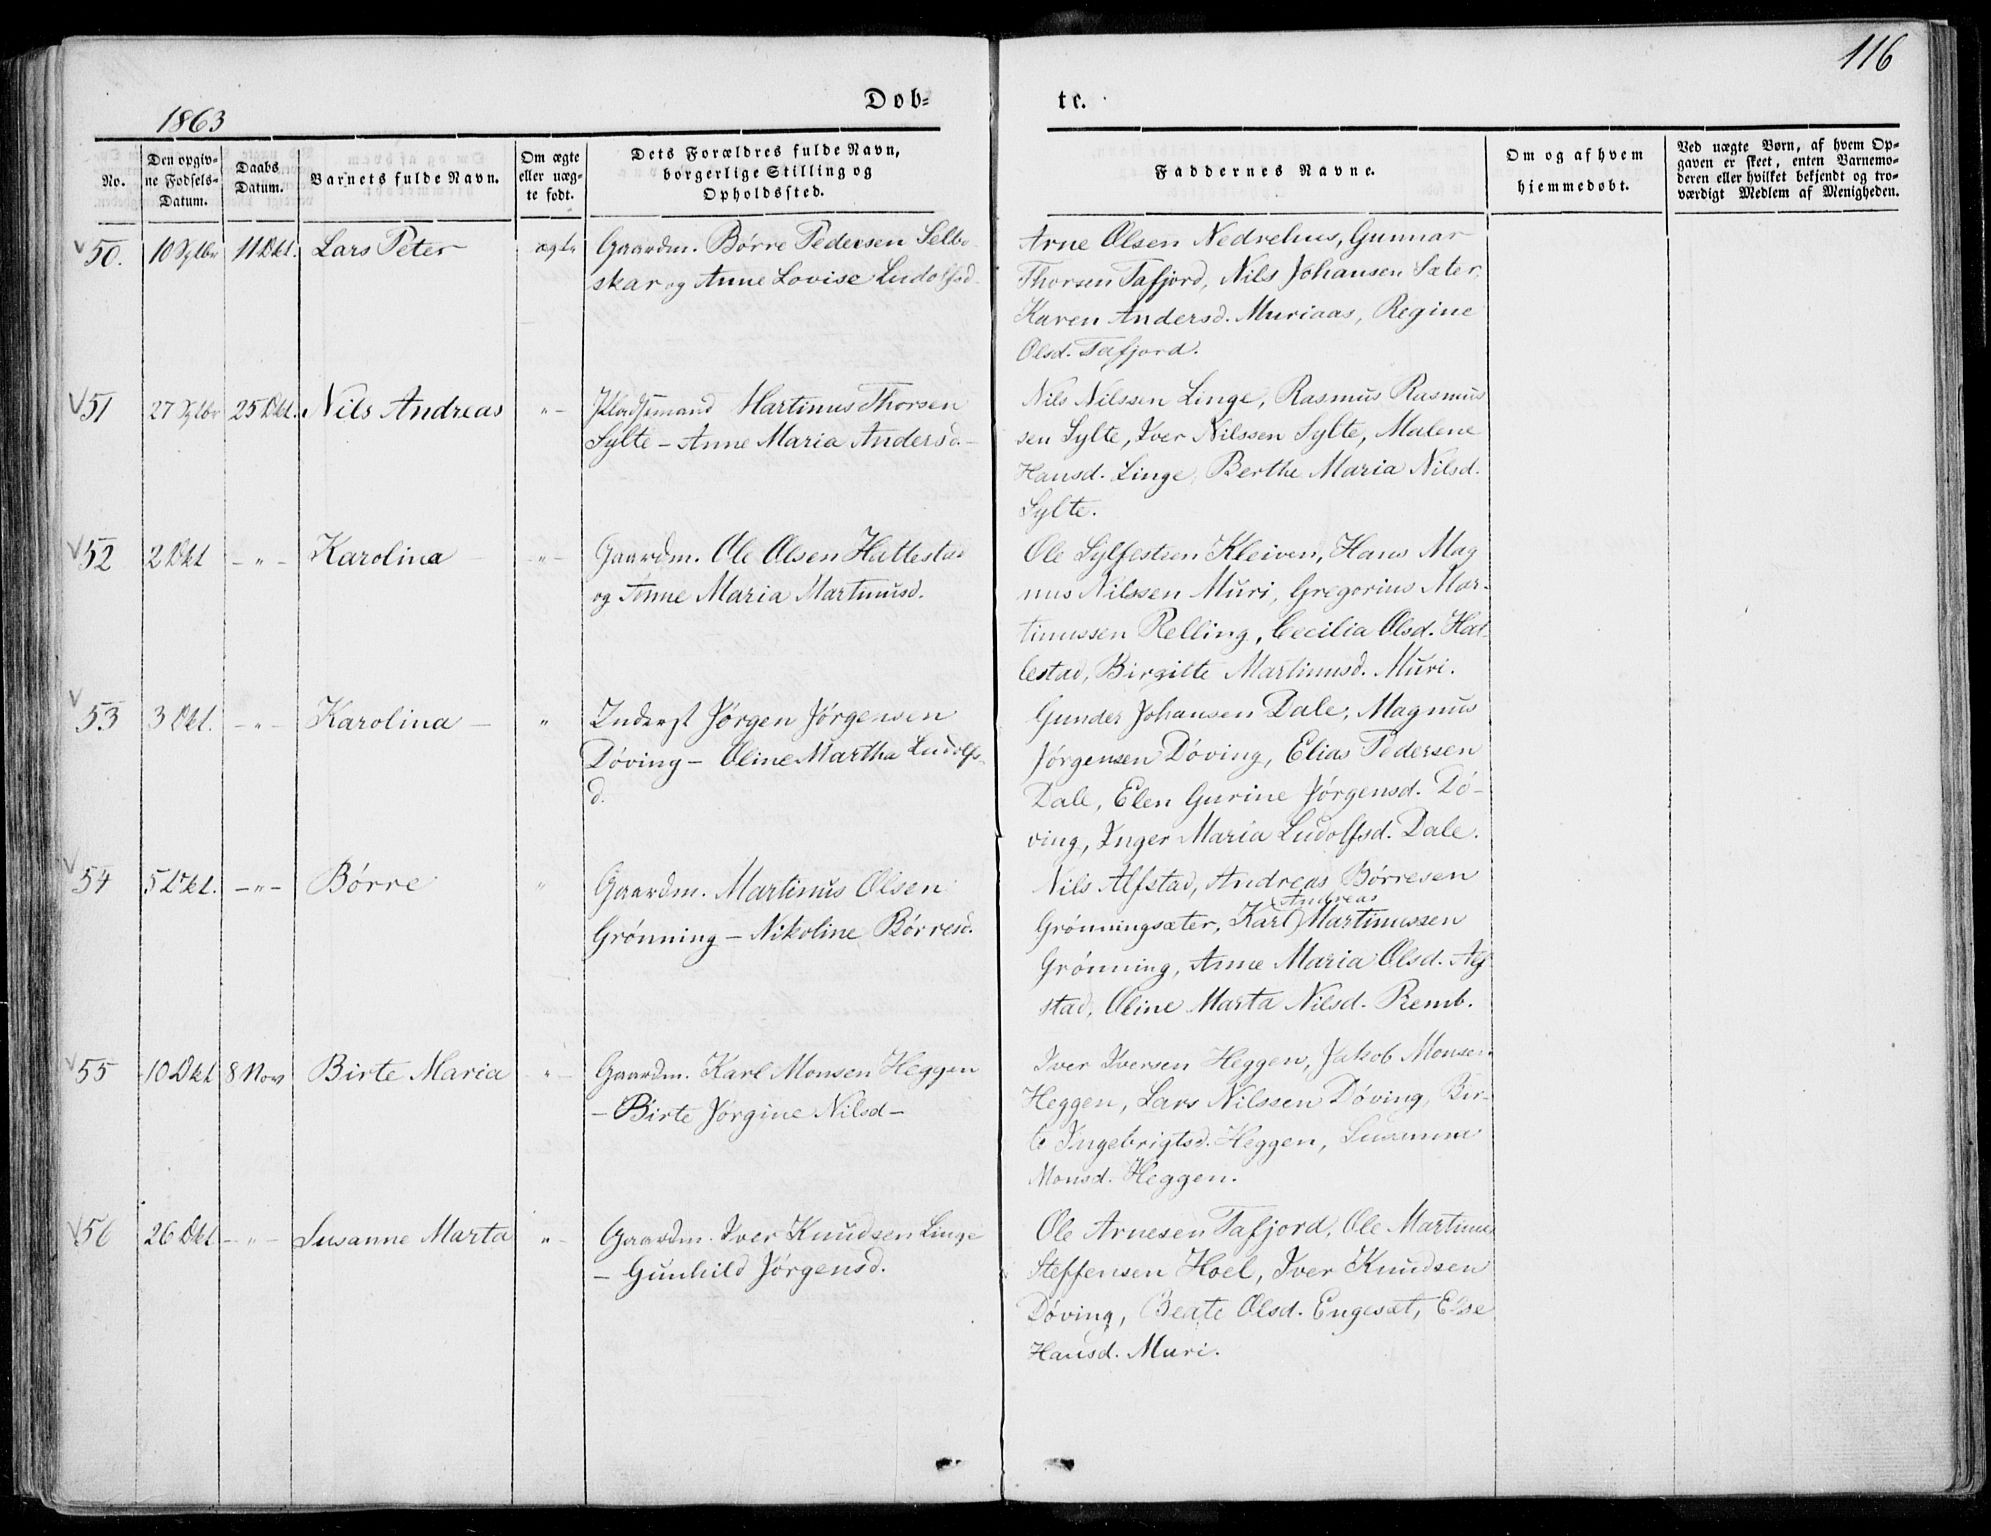 116
1863
Døb-
te.
No.
Den opgiv-
ne Fødsels-
Datum.
Daabs
Datum.
Barnets fulde Navn.
Om ægte
eller uæg-
te født.
Dets Forældres fulde Navn,
borgerlige Stilling og
Opholdssted.
Faddernes Navne.
Om og af hvem
hjemmedøbt.
Ved uægte Børn, af hvem Op-
gaven er skeet, enten Barnemo-
deren eller hvilket bekjendt og tro-
værdigt Medlem af Menigheden.
50. 10 Sptbr 11 Okt. Lars Peter ægte Gaardm. Børre Pedersen Selbo-
skar og Anne Lovise Ludolfsd.
Arne Olsen Nedrehus, Gunnar
Thorsen Tafjord, Nils Johansen Sæter,
Karen Andersd. Muriaas, Regine
Olsd. Tafjord.
51 27 Sptbr 25 Okt. Nils Andreas " - Pladsemand Martinus Thorsen
Sylte - Anne Maria Andersd. -
Nils Nilssen Linge, Rasmus Rasmus
sen Sylte, Iver Nilssen Sylte, Malene
Hansd. Linge, Berthe Maria Nilsd.
Sylte.
52 2 Okt - " - Karolina - - " - Gaardm. Ole Olsen Hattestad
og Anne Maria Martinusd.
Ole Sylfesteen Kleiven, Hans Mag
nus Nilssen Muri, Gregorius Mar-
tinussen Relling, Cecilia Olsd. Hat-
lestad, Birgitte Martinusd. Muri.
53 3 Okt. - " - Karolina - " Inderst Jørgen Jørgensen
Døving - Oline Martha Ludolfs-
d.
Gunder Johansen Dale, Magnus
Jørgensen Døving, Elias Pedersen
Dale, Elen Gurine Jørgensd. Dø-
ving, Inger Maria Ludolfsd. Dale.
54 5 Okt. - " - Børre " Gaardm. Martinus Olsen
Grønning - Nikoline Børresd.
Nils Alfstad, Andreas Børresen
Andreas
Grønningsæter, Karl Martinussen
Grønning, Anne Maria Olsd. Alf
stad, Oline Marta Nilsd. Remb.
55 10 Okt 8 Nov Birte Maria - " - Gaardm. Karl Monsen Heggen
- Birte Jørgine Nilsd -
Iver Iversen Heggen, Jakob Monsen
Heggen, Lars Nilssen Døving, Bir-
te Ingebrigtsd. Heggen, Susanne
Monsd. Heggen.
56 26 Okt - " - Susanne Marta " - Gaardm. Iver Knudsen Linge
- Gunhild Jørgensd.
Ole Arnesen Tafjord, Ole Martinus
Steffensen Hoel, Iver Knudsen
Døving, Beate Olsd. Engeset, Else
Hansd. Muri.